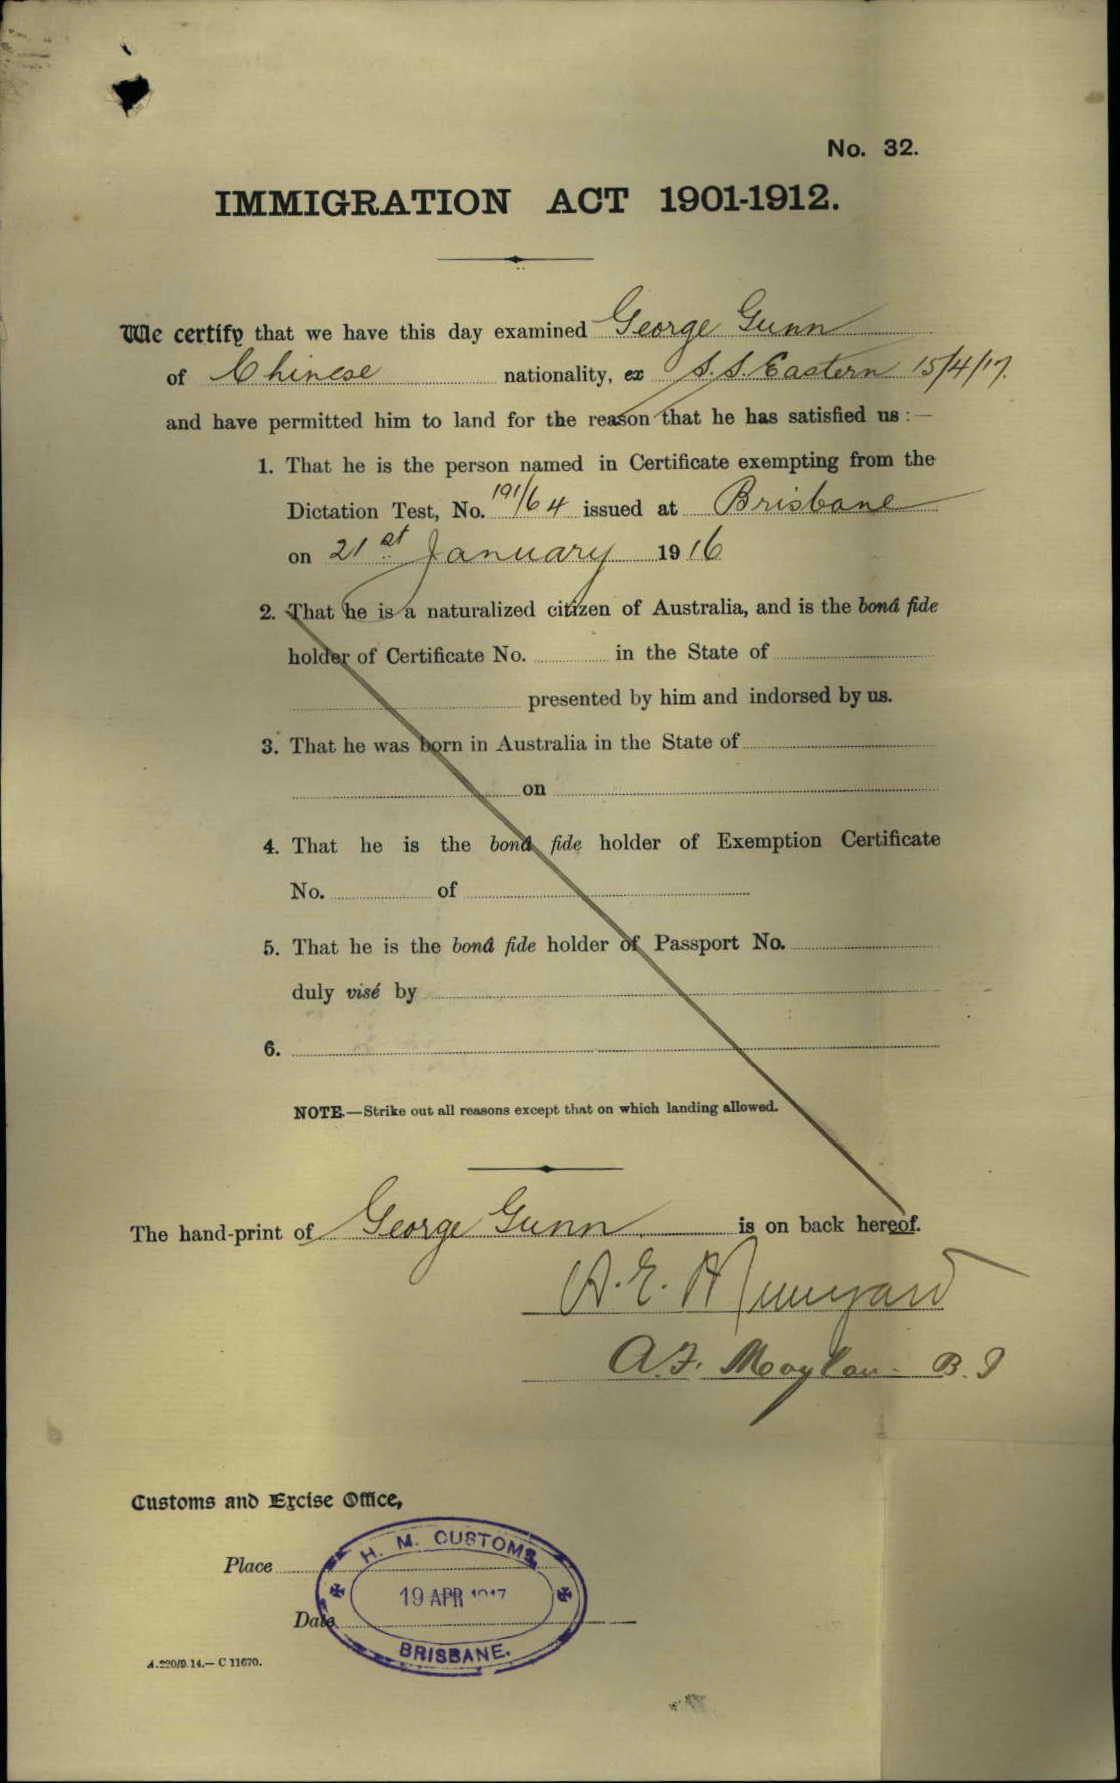 No. 32.
IMMIGRATION ACT 1901-1912.
We certify that we have this day examined George Gunn
of Chinese nationality, ex S.S. Eastern 15/4/17.
and have permitted him to land for the reason that he has satisfied us :—
1. That he is the person named in Certificate exempting from the
Dictation Test, No. 191/64 issued at Brisbane
on 21st January 1916
2. That he is a naturalized citizen of Australia, and is the bonâ fide
holder of Certificate No. in the State of
presented by him and indorsed by us.
3. That he was born in Australia in the State of
on
4. That he is the bonâ fide holder of Exemption Certificate
No. of
5. That he is the bonâ fide holder of Passport No.
duly visé by
6.
NOTE.—Strike out all reasons except that on which landing allowed.
The hand-print of George Gunn is on back hereof.
A.E.
A.F.
Customs and Excise Office,
Place
Date
H. M. CUSTOMS
19 APR 1917
BRISBANE.
A.220/9.14.—C 11670.